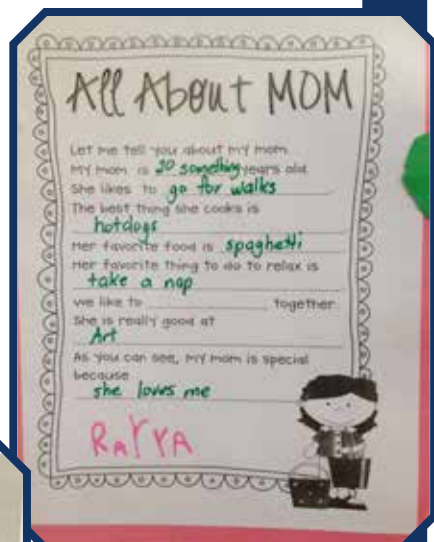 All About MOM
Let me tell you about my mom.
My mom is 20 something years old.
She likes to go for walks
The best thing she cooks is
hotdogs
Her favorite food is spaghetti
Her favorite thing to do to relax is
take a nap
We like to ____________ together.
She is really good at
Art
As you can see, my mom is special
because
she loves me